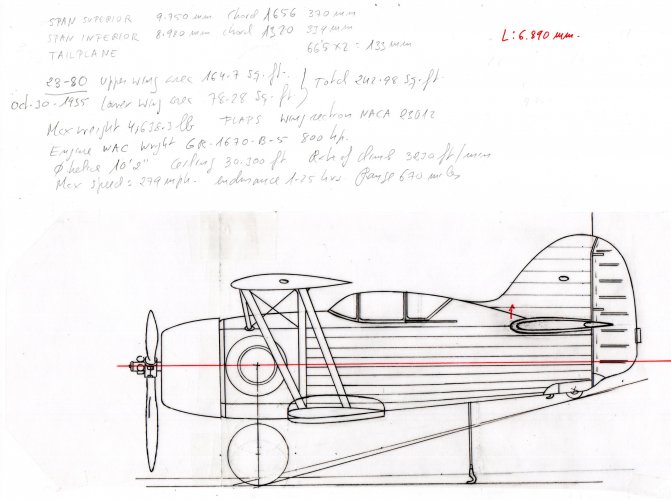 SPAN SUPERIOR 9.750 mm chord 1656 370 mm
SPAN INFERIOR 8.980 mm chord 1320 334 mm
TAILPLANE 66'5 X 2 = 133 mm
L: 6.890 mm.
23-80 Upper wing area 164.7 Sq. ft.
Total 242.98 Sq. ft.
Oct. 30 - 1935 Lower wing area 78.28 Sq. ft.
Max weight lb FLAPS Wing section NACA 23012
Engine Wright GR-1670-B-5 800 hp.
Ø helice Ceiling 30.300 ft Rate of climb ft/min
Max speed = 279 mph. endurance 1-25 hrs. Range 670 miles